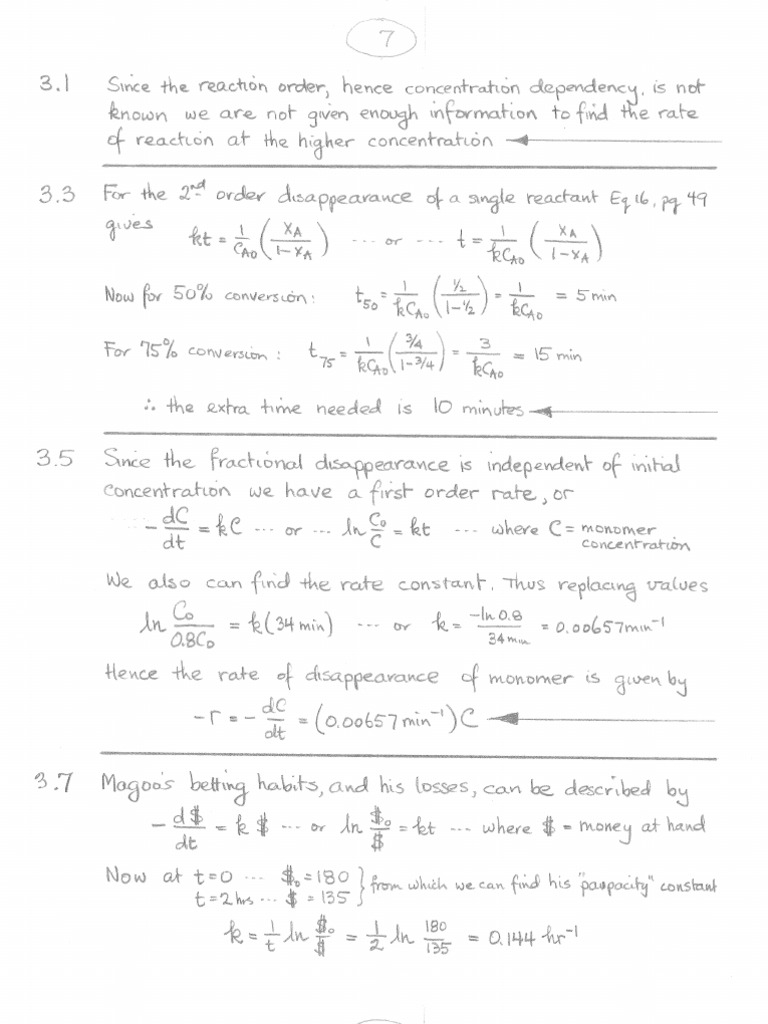 7
3.1 Since the reaction order, hence concentration dependency, is not
known we are not given enough information to find the rate
of reaction at the higher concentration
3.3 For the 2nd order disappearance of a single reactant Eq 16, pg 49
gives kt = 1/CA0 (XA/1-XA) ... or ... t = 1/kCA0 (XA/1-XA)
Now for 50% conversion: t50 = 1/kCA0 (1/2/1-1/2) = 1/kCA0 = 5 min
For 75% conversion: t75 = 1/kCA0 (3/4/1-3/4) = 3/kCA0 = 15 min
∴ the extra time needed is 10 minutes
3.5 Since the fractional disappearance is independent of initial
concentration we have a first order rate, or
- dC/dt = kC ... or ... ln C0/C = kt ... where C = monomer
concentration
We also can find the rate constant. Thus replacing values
ln C0/0.8C0 = k(34 min) ... or k = -ln 0.8/34 min = 0.00657 min-1
Hence the rate of disappearance of monomer is given by
-r = - dC/dt = (0.00657 min-1) C
3.7 Magoo's betting habits, and his losses, can be described by
- d$/dt = k $ ... or ln $0/$ = kt ... where $ = money at hand
Now at t=0 ... $0 = 180 } from which we can find his "paupacity" constant
t=2 hrs ... $ = 135
k = 1/t ln $0/$ = 1/2 ln 180/135 = 0.144 hr-1